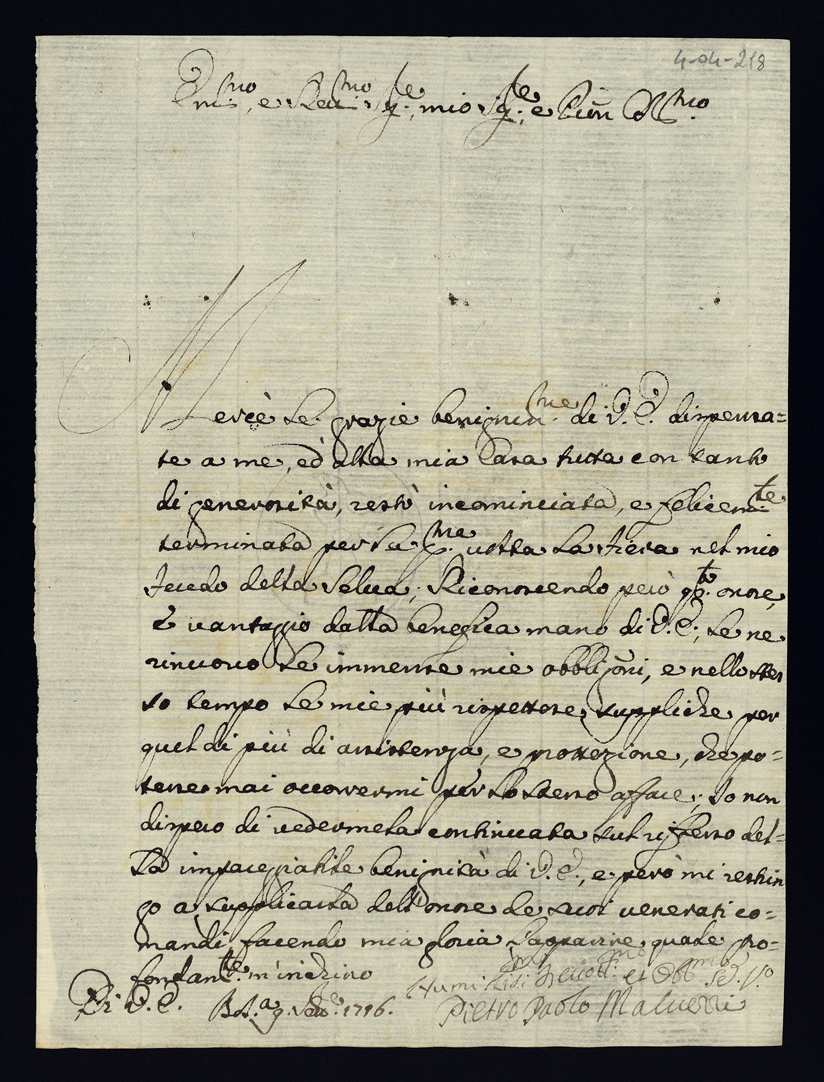 4-04-218
Em.mo, e Rev.mo S.re, mio S.re, e Pron Col.mo
Mercè le grazie benignis.me di V. E. dispensa=
te a me, ed alla mia Casa tutta con tanta
di generosità, restò incominciata, e felicem.te
terminata per la S.ma la Fiera nel mio
Feudo della Selva; Riconoscendo però q.to onore,
e vantaggio dalla benefica mano di V. E., le ne
rinuovo le immense mie obbligõni, e nello stes
so tempo le mie più rispettose suppliche per
quel di più di assistenza, e protezione, che po=
tesse mai occorrermi per lo stesso affare; Io non
dispero di vedermela continuata sul riflesso del=
la impareggiabile benignità di V. E., e però mi restrin
go a supplicarla dell'onore de suoi venerati co=
mandi, facendo mia gloria l'apparire, quale pro=
fondam.te m'inchino
Di V. E. Bol.a 9. 1716.
Humiliss.
Pietro Paolo Malvezzi